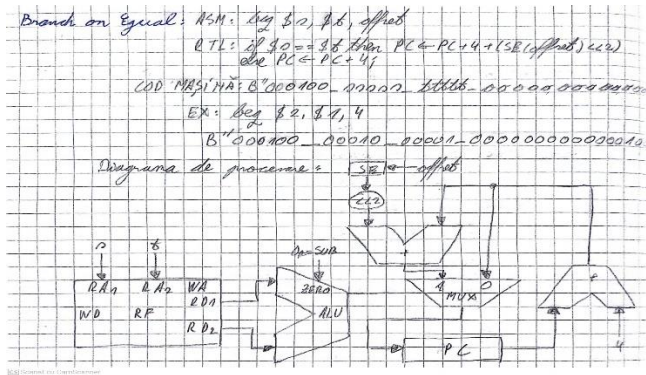 Branch on Equal: ASM: beq $s, $t, offset
RTL: if $s == $t then PC ← PC + 4 + (SE(offset) << 2)
else PC ← PC + 4;
COD MAȘINĂ: B"000100_sssss_ttttt_oooooooooooooo
EX: beq $2, $1, 4
B"000100_00010_00001_00000000000010
Diagrama de procesare:
SE ← offset
<<2
s t Op=SUB +
RA1 RA2 WA ZERO 1 0 +
RD1 MUX
WD RF ALU
RD2
PC 4
Scanned w/ CamScanner